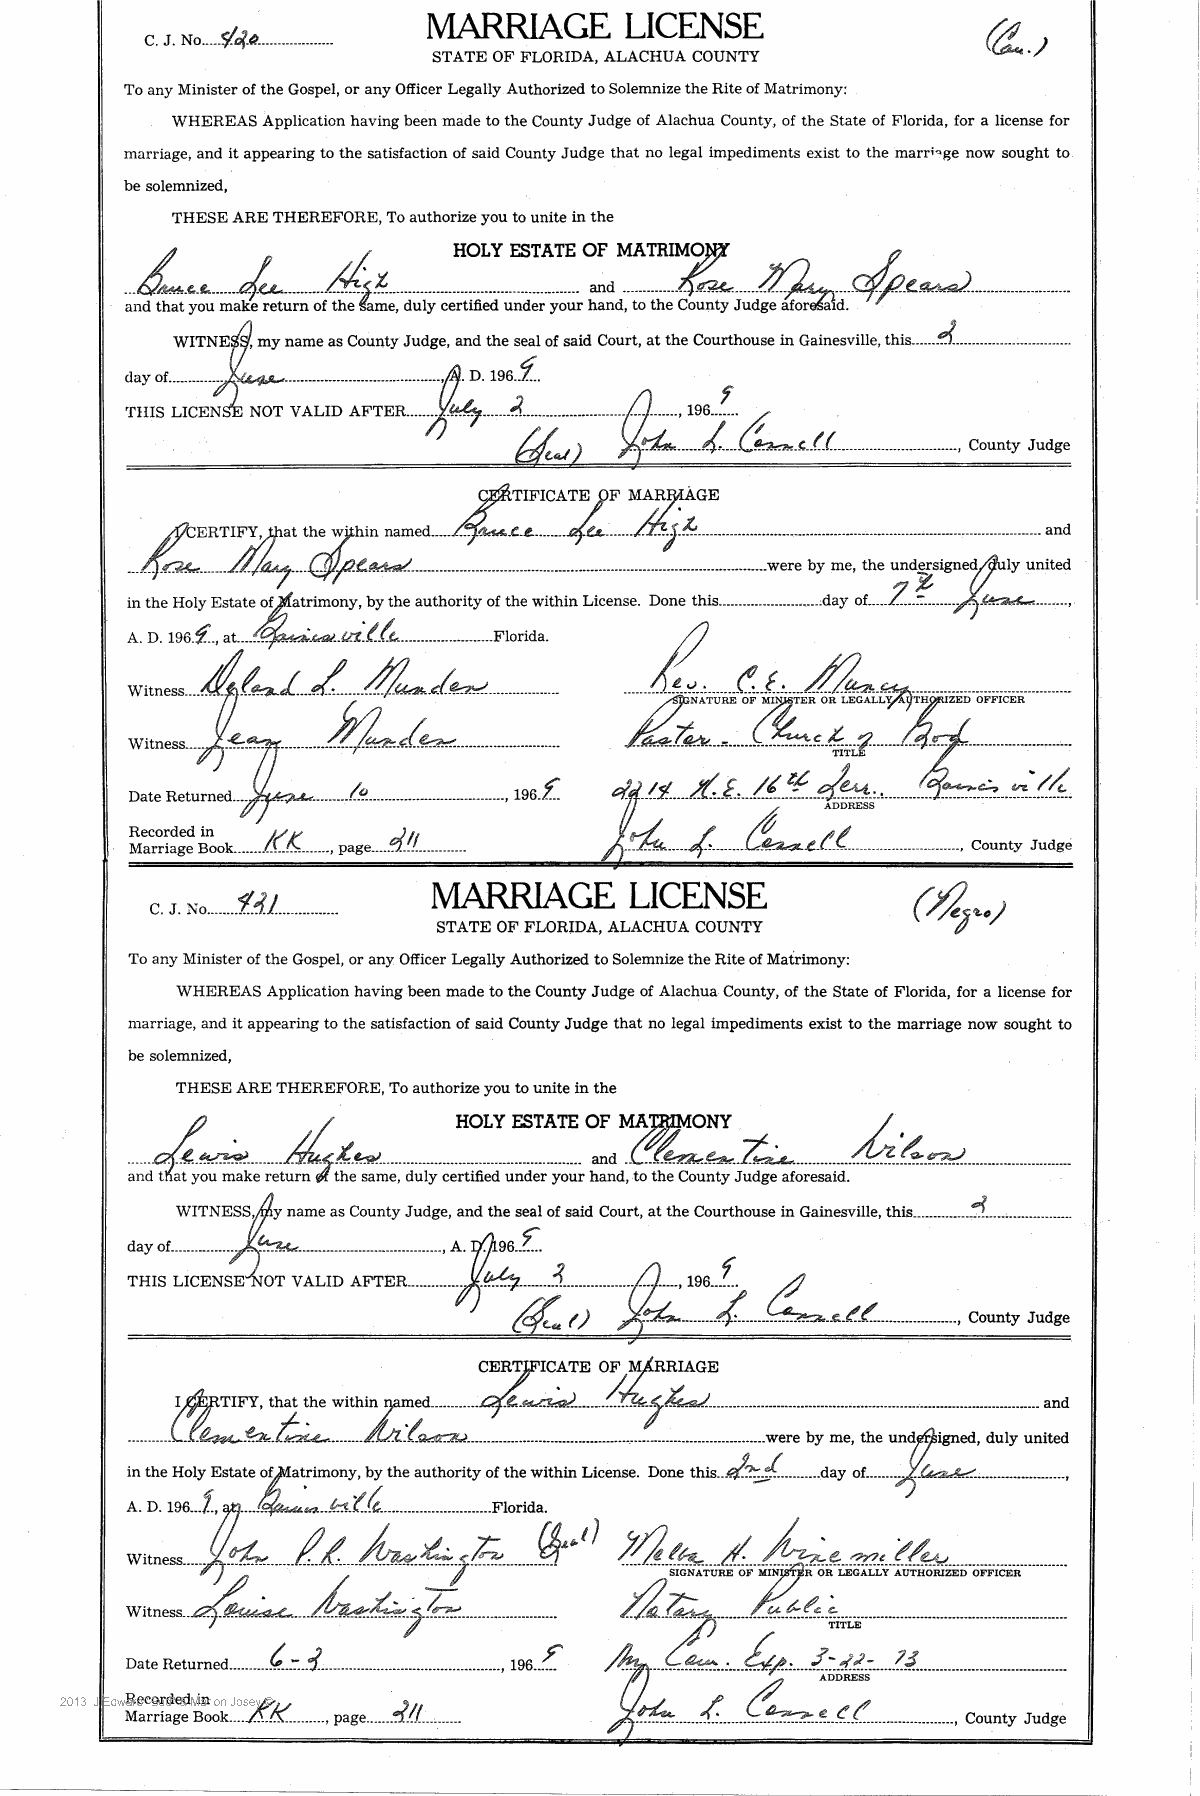 C. J. No. 420
MARRIAGE LICENSE
(Cau.)
STATE OF FLORIDA, ALACHUA COUNTY
To any Minister of the Gospel, or any Officer Legally Authorized to Solemnize the Rite of Matrimony:
WHEREAS Application having been made to the County Judge of Alachua County, of the State of Florida, for a license for
marriage, and it appearing to the satisfaction of said County Judge that no legal impediments exist to the marriage now sought to
be solemnized,
THESE ARE THEREFORE, To authorize you to unite in the
HOLY ESTATE OF MATRIMONY
Bruce Lee High and Rose Mary Spears
and that you make return of the same, duly certified under your hand, to the County Judge aforesaid.
WITNESS, my name as County Judge, and the seal of said Court, at the Courthouse in Gainesville, this 2
day of June, A. D. 1969
THIS LICENSE NOT VALID AFTER July 2, 1969
(Seal) John L. Connell, County Judge
CERTIFICATE OF MARRIAGE
I CERTIFY, that the within named Bruce Lee High and
Rose Mary Spears were by me, the undersigned, duly united
in the Holy Estate of Matrimony, by the authority of the within License. Done this day of 7th June,
A. D. 1969, at Gainesville Florida.
Witness L. Munden Rev. C. E. Muncy
SIGNATURE OF MINISTER OR LEGALLY AUTHORIZED OFFICER
Witness Jean Munden Pastor - Church of God
TITLE
Date Returned June 10, 1969 2214 N.E. 16th Terr., Gainesville
ADDRESS
Recorded in
Marriage Book KK, page 211 John L. Connell, County Judge
C. J. No. 421
MARRIAGE LICENSE
(Negro)
STATE OF FLORIDA, ALACHUA COUNTY
To any Minister of the Gospel, or any Officer Legally Authorized to Solemnize the Rite of Matrimony:
WHEREAS Application having been made to the County Judge of Alachua County, of the State of Florida, for a license for
marriage, and it appearing to the satisfaction of said County Judge that no legal impediments exist to the marriage now sought to
be solemnized,
THESE ARE THEREFORE, To authorize you to unite in the
HOLY ESTATE OF MATRIMONY
Lewis Hughes and Clementine Wilson
and that you make return of the same, duly certified under your hand, to the County Judge aforesaid.
WITNESS, my name as County Judge, and the seal of said Court, at the Courthouse in Gainesville, this 2
day of June, A. D. 1969
THIS LICENSE NOT VALID AFTER July 2, 1969
(Seal) John L. Connell, County Judge
CERTIFICATE OF MARRIAGE
I CERTIFY, that the within named Lewis Hughes and
Clementine Wilson were by me, the undersigned, duly united
in the Holy Estate of Matrimony, by the authority of the within License. Done this 2nd day of June,
A. D. 1969, at Gainesville Florida.
Witness John P. R. Washington (Seal) Melba H. Winemiller
SIGNATURE OF MINISTER OR LEGALLY AUTHORIZED OFFICER
Witness Louise Washington Notary Public
TITLE
Date Returned 6-2, 1969 My Com. Exp. 3-22-73
ADDRESS
2013 Recorded in
Marriage Book KK, page 211 John L. Connell, County Judge